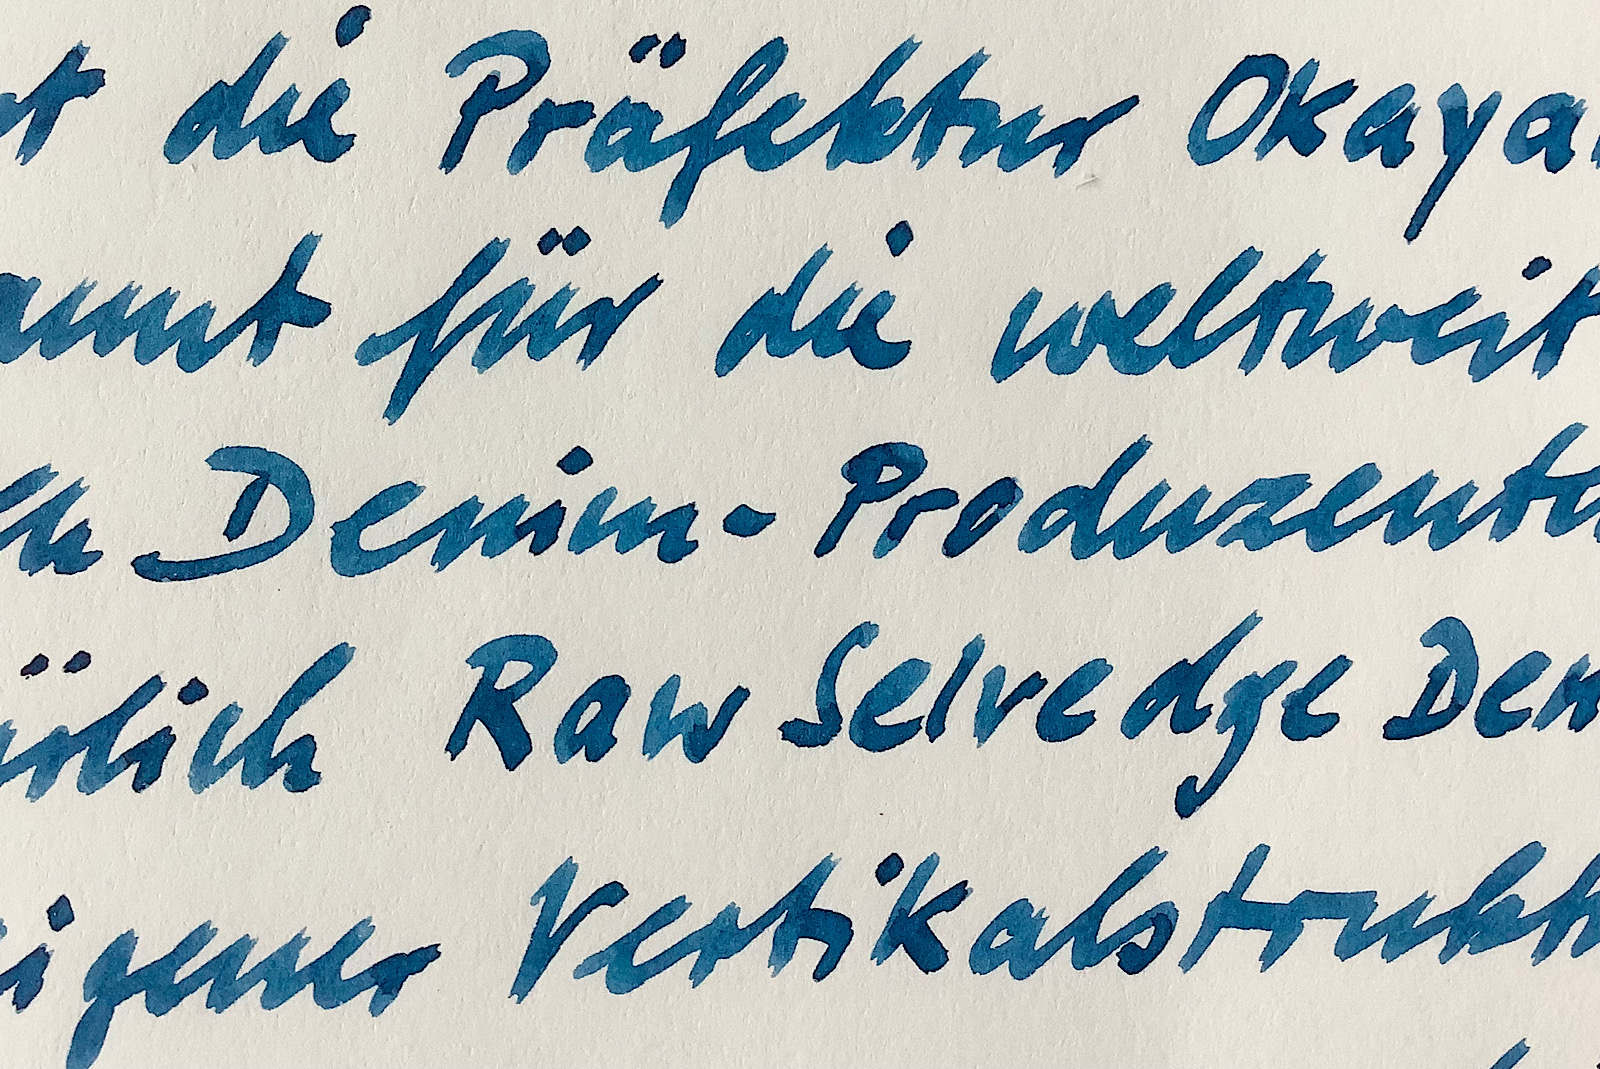 t die Präfektur Okaya
annt für die weltweit
en Denim-Produzente
ürlich Raw Selvedge Den
eigener Vertikalstrukt